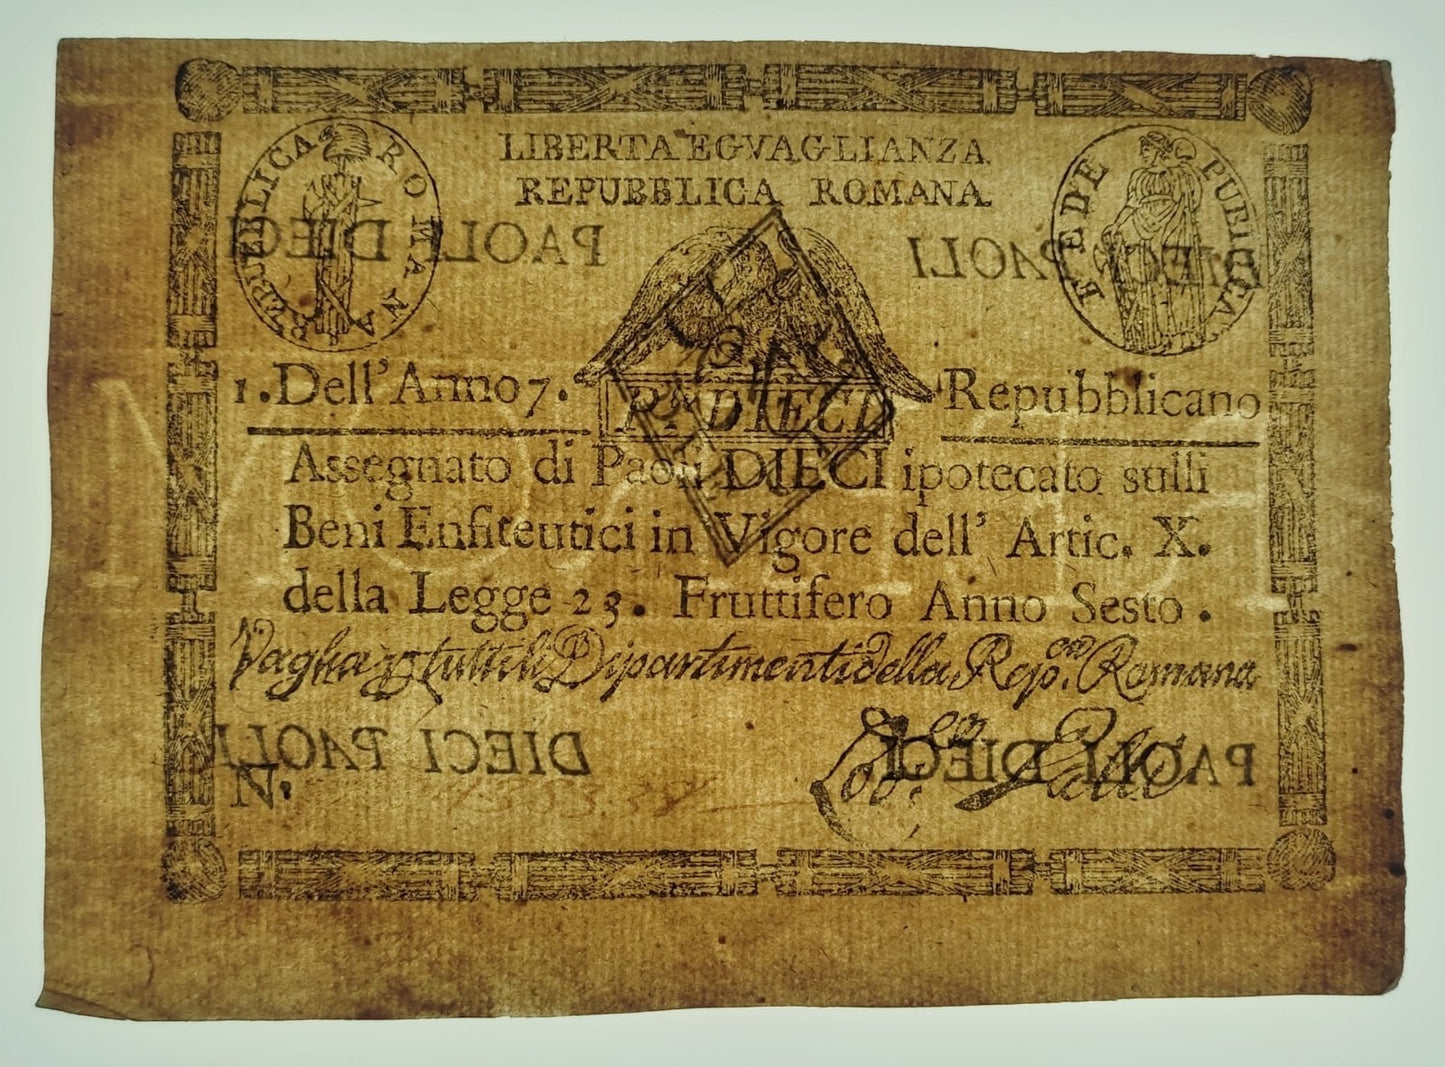 LIBERTA EGVAGLIANZA
REPUBBLICA ROMANA
REPUBBLICA ROMANA
FEDE PUBLICA
PAOLI DIECI
PAOLI DIECI
1. Dell' Anno 7.
Pli DIECI
Repubblicano
Assegnato di Paoli DIECI ipotecato sulli
Beni Enfiteutici in Vigore dell' Artic. X.
della Legge 23. Fruttifero Anno Sesto.
Vaglia p tutti li Dipartimenti della Rep. Romana
DIECI PAOLI
PAOLI DIECI
N.